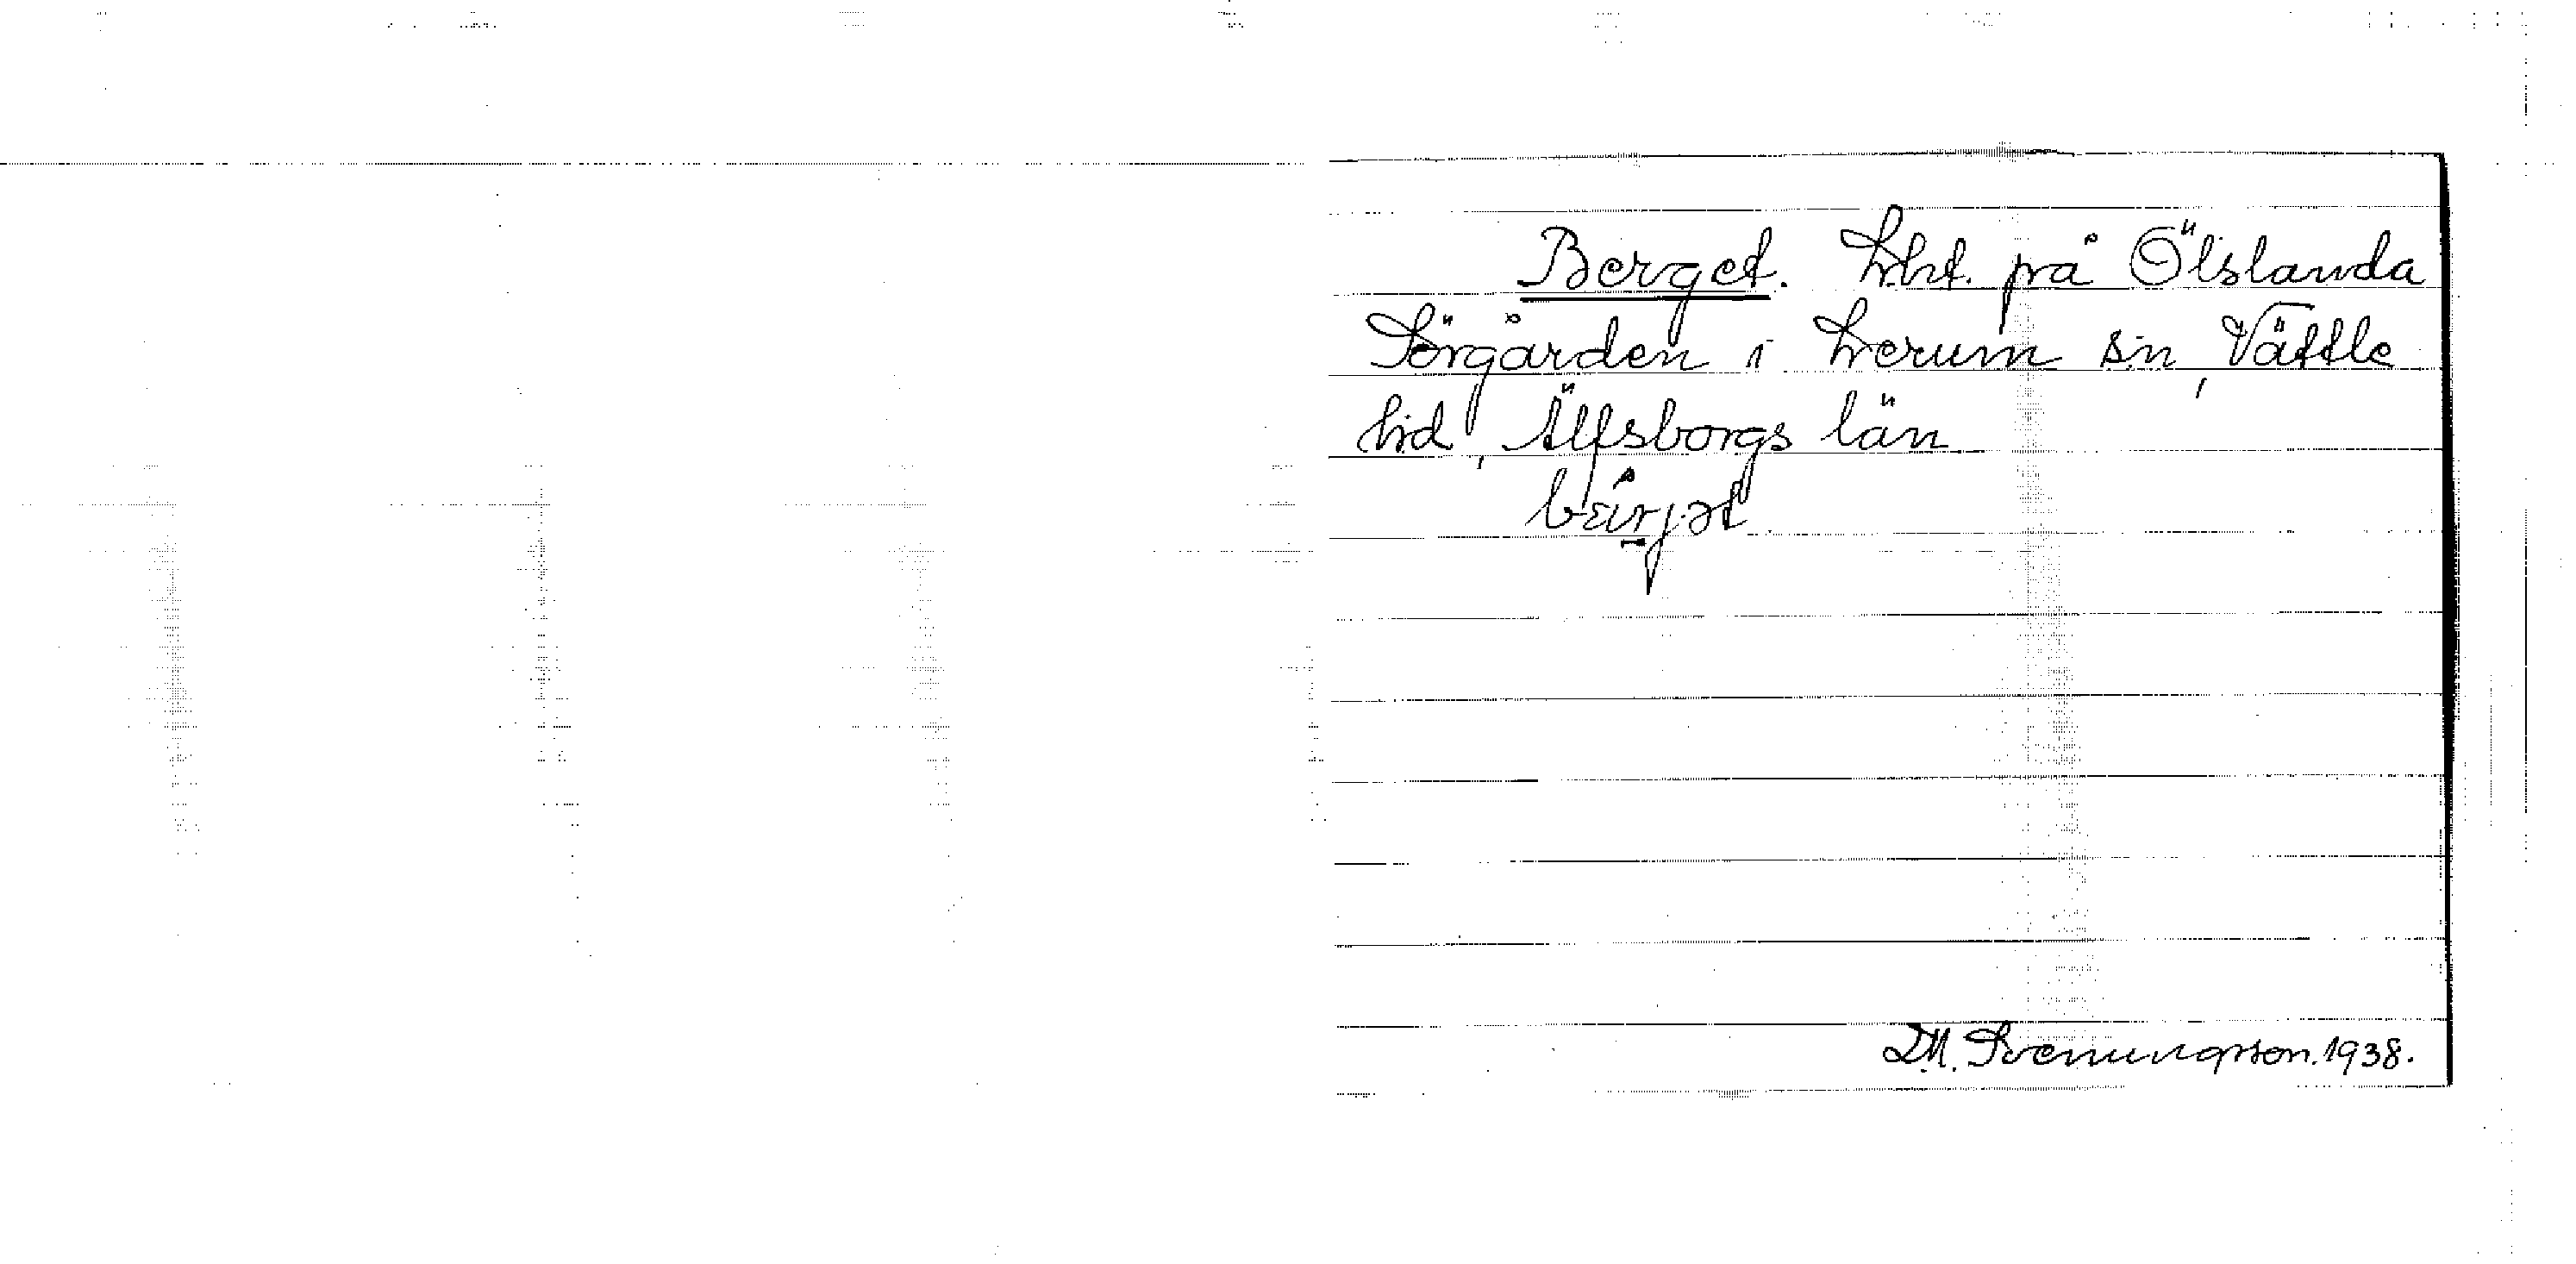 Berget. Lht. på Ölslanda
Sörgården i Lerum sn, Vättle
hd, Älfsborgs län
D.M. Svenungsson. 1938.